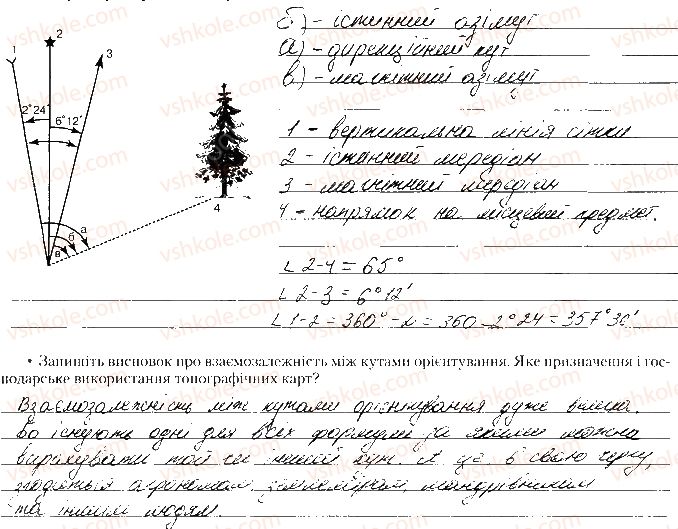 б) - істинний азімут
а) - дирекційний кут
в) - магнітний азімут
1
2
3
2°24'
6°12'
а
б
в
4
1 - вертикальна лінія сітки
2 - істинний меридіан
3 - магнітний меридіан
4 - напрямок на місцевий предмет.
∠ 2-4 = 65°
∠ 2-3 = 6°12'
∠ 1-2 = 360° - = 360 - 2°24 = 357°36'
• Запишіть висновок про взаємозалежність між кутами орієнтування. Яке призначення і гос-
подарське використання топографічних карт?
Взаємозалежність між кутами орієнтування дуже велика.
Бо існують одні для всіх формули за якими можна
вирахувати той чи інший кут. А це в свою чергу,
згодиться агрономам, землемірам, мандрівникам
та іншим людям.